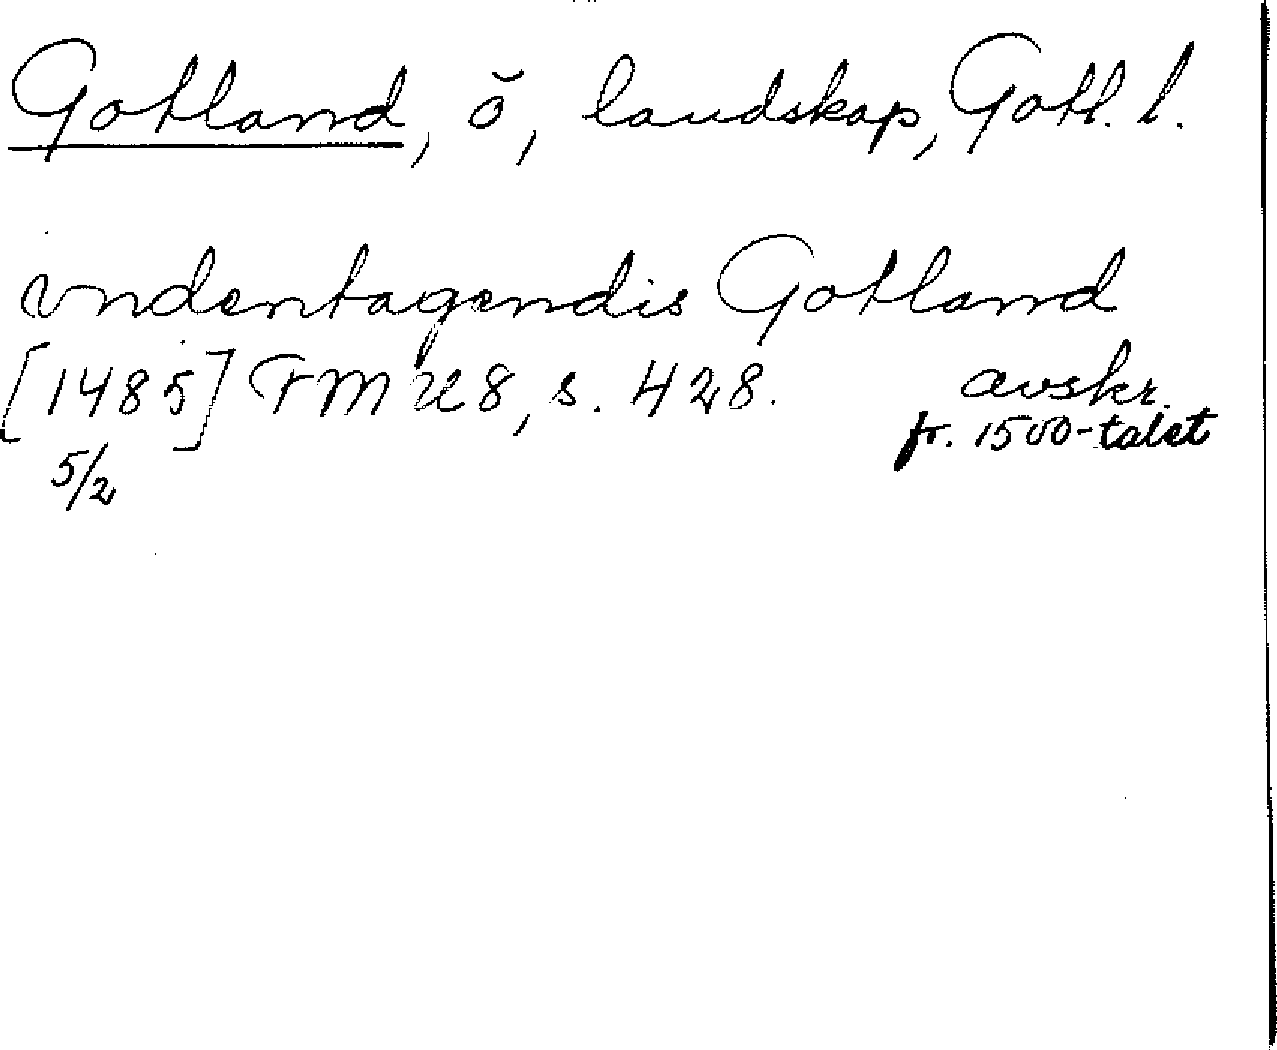 Gotland, ö, landskap, Gotl. l.
vndentagendis Gotland
[1485] FMU 8, s. 428. avskr.
fr. 1500-talet
5/2